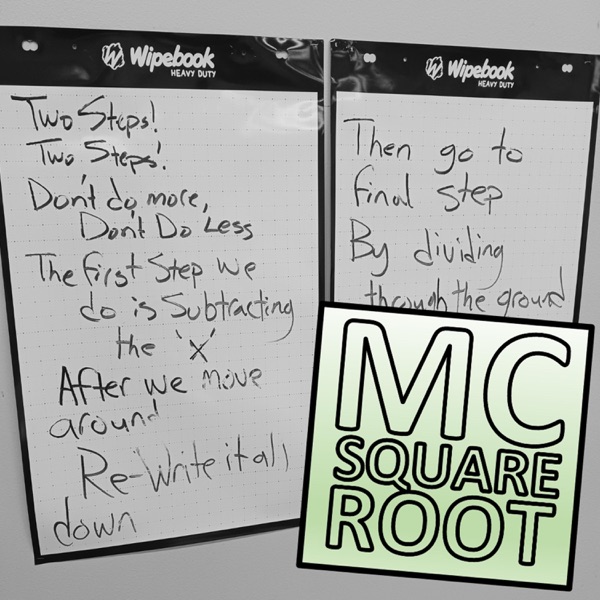 Wipebook
HEAVY DUTY
Two Steps!
Two Steps!
Don't do more,
Dont Do Less
The first Step we
do is Subtracting
the 'x'
After we move
around
Re-Write it all
down
Wipebook
HEAVY DUTY
Then go to
final step
By dividing
through the ground
MC
SQUARE
ROOT